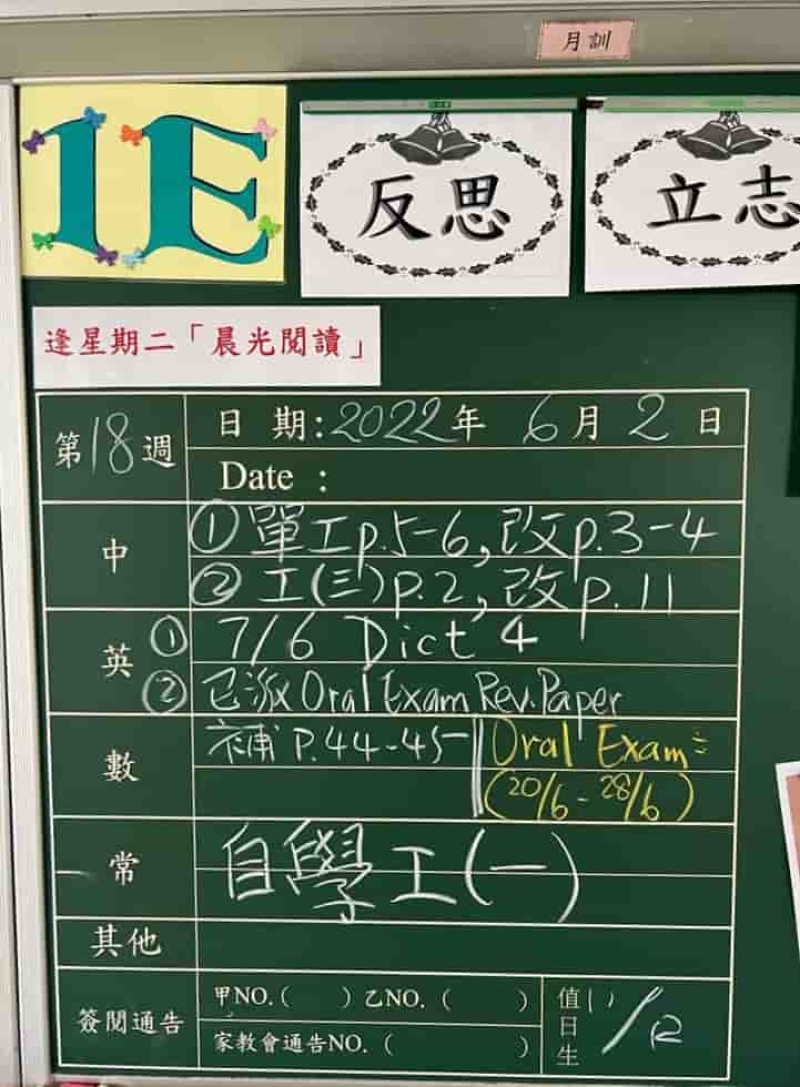 月訓
1E
反思
立志
逢星期二「晨光閱讀」
第18週
日 期:2022年 6月2日
Date :
中
①單工p.5-6,改p.3-4
②工(三)p.2,改p.11
英
①7/6 Dict 4
②已派Oral Exam Rev.Paper
數
補P.44-45
Oral Exam:
(20/6-28/6)
常
自學工(一)
其他
簽閱通告
甲NO.( )乙NO.( )
家教會通告NO.( )
值日生
11/12